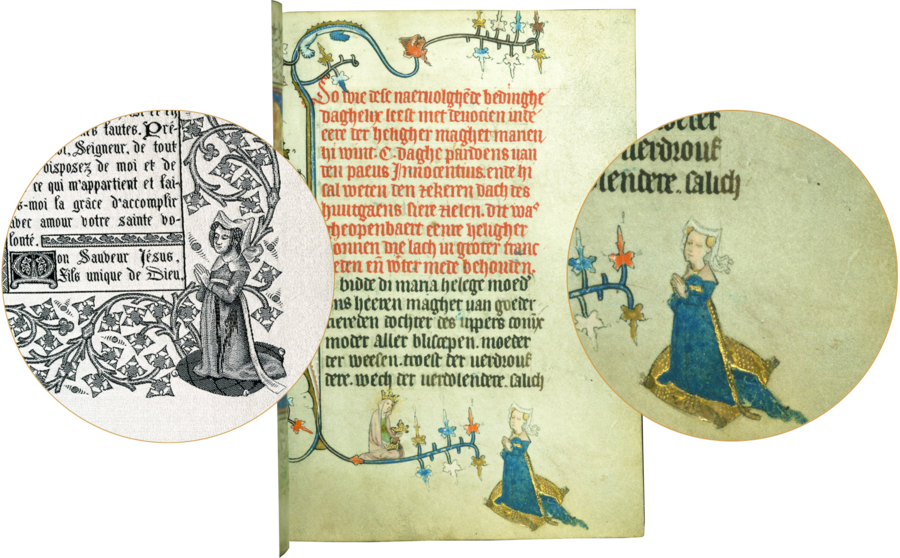 fautes. Pré-
Seigneur, de tout
disposez de moi et de
ce qui m'appartient et fai-
s-moi la grâce d'accomplir
avec amour votre sainte vo-
lonté.
Mon Sauveur Jésus,
Fils unique de Dieu,
So wie dese naervolghēde bedinghe
daghelix leest met devocien inde
eere der heligher maghet marien
hi wint .C. daghe pardoens van
den paeus Innocentius. ende hi
sal weten den zekeren dach des
huutgaens siere zielen. dit was
gheopenbaert eenre heligher
nonnen die lach in groter tranc
eten eñ wter mede behouden.
bidde di maria helege moed
ns heeren maghet van goeder
tierenden dochter des uppers conix
moder aller bliscepen. moeder
der weesen. troest der verdrouf
dere. wech der verdolendere. salich
moeder
verdrouf
olendere. salich